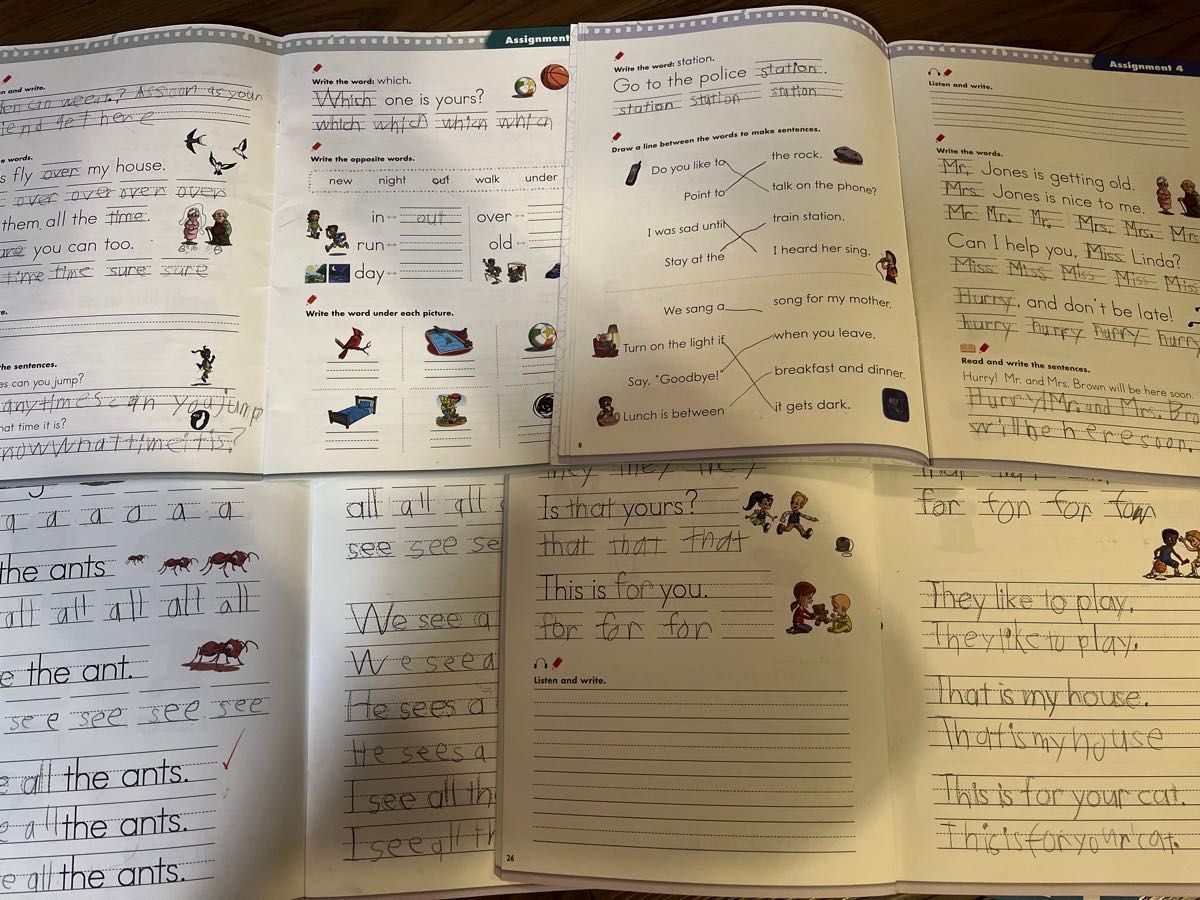 en and write.
en can we eat? As soon as your
end get here
e words.
s fly over my house.
over over over over
them all the time.
you can too.
time time sure sure
he sentences.
es can you jump?
any times can you jump
hat time it is?
now what time it is?
Assignment
Write the word: which.
Which one is yours?
which which which which
Write the opposite words.
new night out walk under
in ↔ out over ↔
run ↔ old ↔
day ↔
Write the word under each picture.
Write the word: station.
Go to the police station.
station station station
Draw a line between the words to make sentences.
Do you like to the rock.
Point to talk on the phone?
I was sad until train station.
Stay at the I heard her sing.
We sang a song for my mother.
Turn on the light if when you leave.
Say, "Goodbye!" breakfast and dinner.
Lunch is between it gets dark.
8
Assignment 4
Listen and write.
Write the words.
Mr. Jones is getting old.
Mrs. Jones is nice to me.
Mr. Mr. Mr. Mrs. Mrs. Mrs
Can I help you, Miss Linda?
Miss Miss Miss Miss Miss
Hurry, and don't be late!
hurry hurry hurry hurry
Read and write the sentences.
Hurry! Mr. and Mrs. Brown will be here soon.
Hurry! Mr. and Mrs. Bro
will be here soon.
a a a a a a
the ants
all all all all all
e the ant.
see see see see
e all the ants.
e all the ants.
e all the ants.
all all all
see see se
We see a
We see a
He sees a
He sees a
I see all th
I see all th
they they they
Is that yours?
that that that
This is for you.
for for for
Listen and write.
26
for for for for
They like to play.
They like to play.
That is my house.
That is my house
This is for your cat.
This is for your cat.